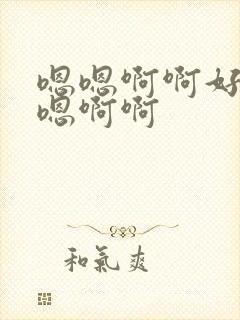 嗯嗯啊啊好
嗯啊啊
和氣爽